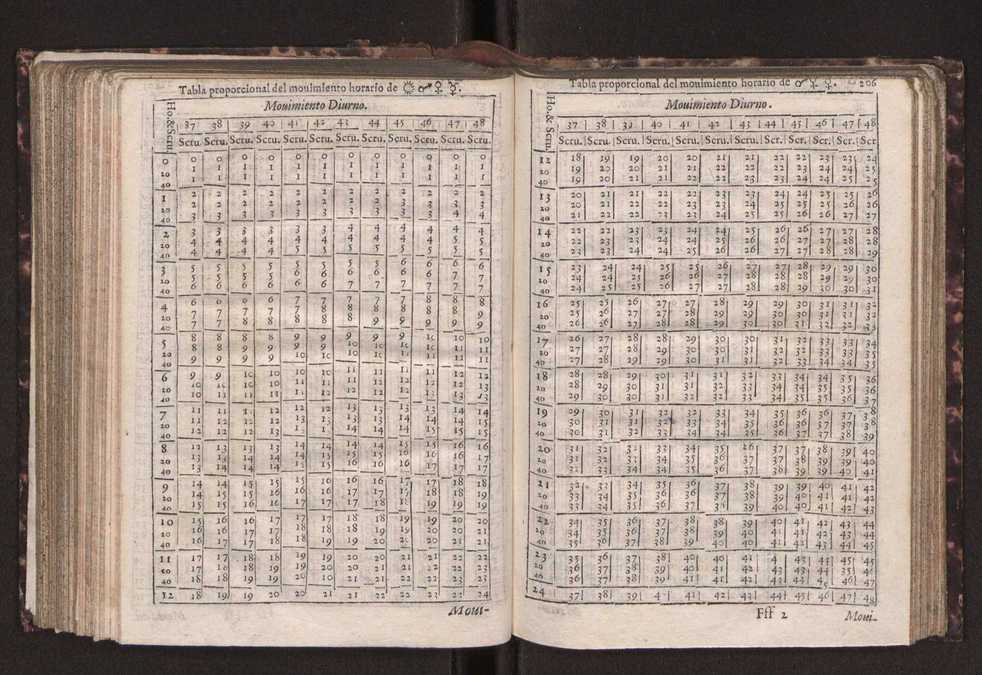 Tabla proporcional del mouimiento horario de ☼ ♂ ♀ ☿.
Mouimiento Diurno.
Ho.& Scru. 37 38 39 40 41 42 43 44 45 46 47 48
Scru. Scru. Scru. Scru. Scru. Scru. Scru. Scru. Scru. Scru. Scru. Scru.
0 0 0 0 0 0 0 0 0 0 0 0 0
20 1 1 1 1 1 1 1 1 1 1 1 1
40 1 1 1 1 1 1 1 1 1 1 1 1
1 2 2 2 2 2 2 2 2 2 2 2 2
20 2 2 2 2 2 2 2 2 3 3 3 3
40 3 3 3 3 3 3 3 3 3 3 4 4
2 3 3 3 3 3 4 4 4 4 4 4 4
20 4 4 4 4 4 4 4 4 4 4 5 5
40 4 4 4 4 5 5 5 5 5 5 5 5
3 5 5 5 5 5 5 5 6 6 6 6 6
20 5 5 5 6 6 6 6 6 6 6 7 7
40 6 6 6 6 6 6 7 7 7 7 7 7
4 6 0 0 6 7 7 7 7 7 8 8 8
20 7 7 7 7 7 8 8 8 8 8 8 9
40 7 7 8 8 8 8 8 9 9 9 9 9
5 8 8 8 8 9 9 9 9 9 10 10 10
20 8 8 9 9 9 9 10 10 10 10 11 11
40 9 9 9 9 10 10 10 10 11 11 11 11
6 9 9 10 10 10 10 11 11 11 11 12 12
20 10 10 10 11 11 11 11 12 12 12 12 13
40 10 11 11 11 11 12 12 12 12 13 13 13
7 11 11 11 12 12 12 13 13 13 13 14 14
20 11 12 12 12 13 13 13 13 14 14 14 15
40 12 12 12 13 13 13 14 14 14 15 15 15
8 12 13 13 13 14 14 14 15 15 15 16 16
20 13 13 14 14 14 15 15 15 16 16 16 17
40 13 14 14 14 15 15 16 16 16 17 17 17
9 14 14 15 15 15 16 16 16 17 17 18 18
20 14 15 15 16 16 16 17 17 17 18 18 19
40 15 15 16 16 17 17 17 18 18 19 19 19
10 15 16 16 17 17 17 18 18 19 19 20 20
20 16 16 17 17 18 18 18 19 19 20 20 21
40 16 17 17 18 18 19 19 20 20 20 21 21
11 17 17 18 18 19 19 20 20 21 21 22 22
20 17 18 18 19 19 20 20 21 21 22 22 23
40 18 18 19 19 20 20 21 21 22 22 23 23
12 18 19 19 20 20 21 21 22 22 23 23 24
Moui-
Tabla proporcional del mouimiento horario de ♂ ☿ ♀. 206
Mouimiento Diurno.
Ho.& Scru. 37 38 39 40 41 42 43 44 45 46 47 48
Scru. Scru. Scru. Scru. Scru. Scru. Scru. Scr. Scr. Scr. Scr. Scr
12 18 19 19 20 20 21 21 22 22 23 23 24
20 19 20 20 21 21 22 22 23 23 24 24 25
40 19 20 21 21 22 22 23 23 24 24 25 25
13 20 21 21 22 22 23 23 24 24 25 25 26
20 20 21 22 22 23 23 24 25 25 25 26 26
40 21 22 22 23 23 24 25 25 26 26 27 27
14 22 22 23 23 24 24 25 26 26 27 27 28
20 22 23 23 24 24 25 26 26 27 27 28 28
40 23 23 24 24 25 26 26 27 27 28 28 29
15 23 24 24 25 25 26 27 27 28 29 29 30
20 24 24 25 26 26 27 28 28 28 29 30 30
40 24 25 25 26 27 27 28 28 29 30 30 31
16 25 25 26 27 27 28 29 29 30 31 31 32
20 25 26 27 27 28 29 29 30 30 31 32 32
40 26 26 27 28 28 29 30 30 31 32 32 33
17 26 27 28 28 29 30 30 31 32 33 33 34
20 27 27 28 29 30 30 31 32 33 33 34 35
40 27 28 29 29 30 31 31 32 33 34 34 35
18 28 28 29 30 31 31 32 33 34 34 35 36
20 28 29 30 31 31 32 33 34 34 35 35 36
40 29 30 30 31 32 32 33 34 35 36 36 37
19 29 30 31 32 32 33 34 35 36 36 37 38
20 30 31 31 32 33 34 35 36 36 37 37 38
40 30 31 32 33 34 34 35 36 37 37 38 39
20 31 32 32 33 34 35 36 37 37 38 39 40
20 31 32 33 34 35 36 37 37 38 39 39 40
40 32 33 34 34 35 36 37 38 39 39 40 41
21 32 33 34 35 36 37 38 39 39 40 41 42
20 33 34 35 36 36 37 38 39 40 41 41 42
40 33 34 35 36 37 38 39 40 40 41 42 43
22 34 35 36 37 38 38 39 40 41 42 43 44
20 34 35 36 37 38 39 40 41 42 42 43 44
40 35 36 37 38 39 40 40 41 42 43 44 45
23 35 36 37 38 40 40 41 42 43 45 45
20 36 37 38 39 40 41 42 43 44 44 45 46
40 36 37 38 39 41 41 42 43 44 45 46 47
24 37 38 39 40 41 42 43 44 45 46 47 48
Fff 2 Moui-